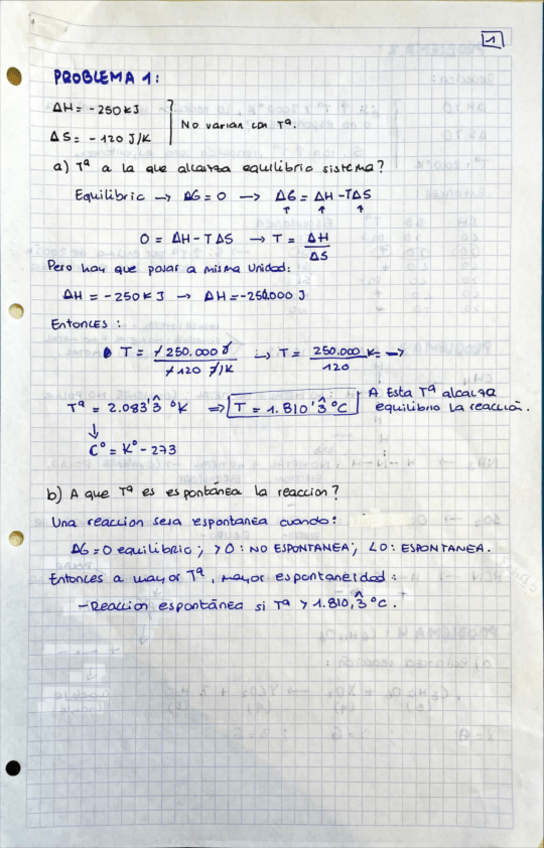 1
PROBLEMA 1:
ΔH = -250 kJ
ΔS = -120 J/K
No varian con Tª.
a) Tª a la que alcanza equilibrio sistema?
Equilibrio → ΔG = 0 → ΔG = ΔH - TΔS
0 = ΔH - TΔS → T = ΔH / ΔS
Pero hay que pasar a misma unidad:
ΔH = -250 kJ → ΔH = -250.000 J
Entonces:
T = -250.000 J / -120 J/K → T = 250.000 / 120 K →
Tª = 2.083'3̂ ºK ⇒ T = 1.810'3̂ ºC A Esta Tª alcanza
equilibrio la reacción.
↓
Cº = Kº - 273
b) A que Tª es espontánea la reaccion?
Una reaccion sera espontanea cuando:
ΔG = 0 equilibrio; > 0: NO ESPONTANEA; < 0: ESPONTANEA.
Entonces a mayor Tª, mayor espontaneidad:
- Reaccion espontánea si Tª > 1.810,3̂ ºC.